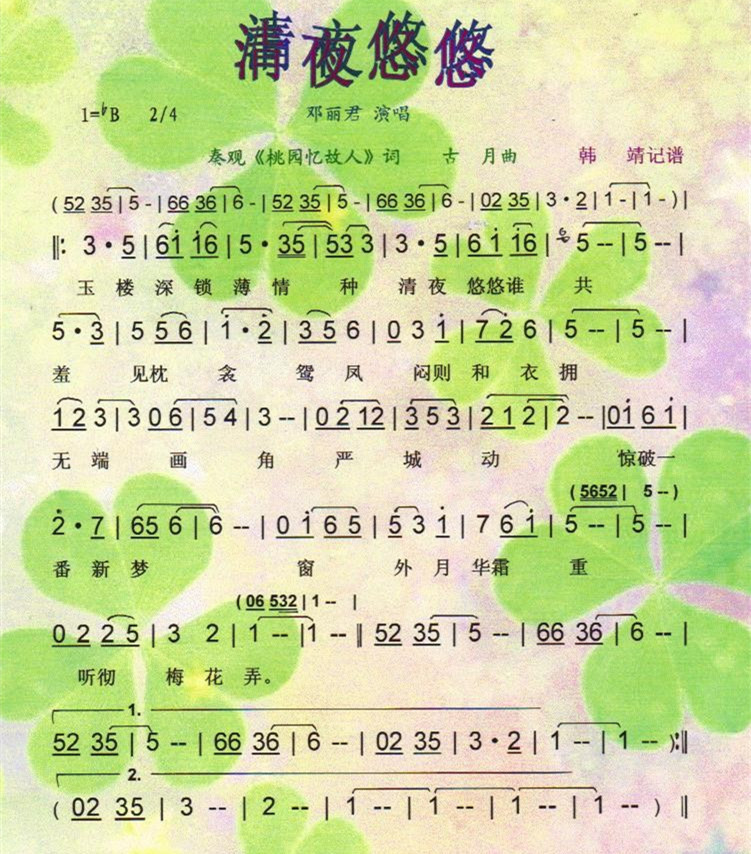 清夜悠悠
1=♭B 2/4 邓丽君 演唱
秦观《桃园忆故人》词 古 月曲 韩 靖记谱
( 52 35 | 5 - | 66 36 | 6 - | 52 35 | 5 - | 66 36 | 6 - | 02 35 | 3 · 2 | 1 - | 1 - ) |
‖: 3 · 5 | 6i̇ i̇6 | 5 · 35 | 53 3 | 3 · 5 | 6 i̇ i̇6 | 5 -- | 5 -- |
玉 楼 深 锁 薄 情 种 清 夜 悠悠谁 共
5 · 3 | 5 5 6 | i̇ · 2̇ | 3 5 6 | 0 3 i̇ | 7 2̇ 6 | 5 -- | 5 -- |
羞 见枕 衾 鸳 凤 闷则 和 衣 拥
1 2 3 | 3 0 6 | 5 4 | 3 -- | 0 2 12 | 3 5 3 | 2 1 2 | 2 -- | 0i̇ 6 i̇ |
无 端 画 角 严 城 动 惊破一
( 5652 | 5 -- )
2̇ · 7 | 65 6 | 6 -- | 0 i̇ 6 5 | 5 3 i̇ | 7 6 i̇ | 5 -- | 5 -- |
番 新 梦 窗 外 月 华霜 重
( 06 532 | 1 -- |
0 2 2 5 | 3 2 | 1 -- | 1 -- ‖ 52 35 | 5 -- | 66 36 | 6 -- |
听彻 梅 花 弄。
1.
52 35 | 5 -- | 66 36 | 6 -- | 02 35 | 3 · 2 | 1 -- | 1 -- ) :‖
2.
( 02 35 | 3 -- | 2 -- | 1 -- | 1 -- | 1 -- | 1 -- ) ‖